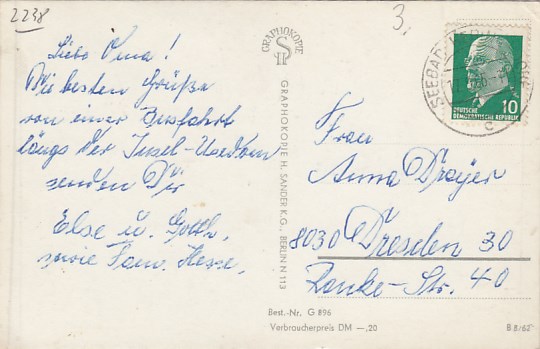 2238
3.
Liebe Oma!
Die besten Grüße
von einer Busfahrt
längs der Insel-Usedom
senden Dir
Else u. Gotth.
sowie Fam. Hesse.
GRAPHOKOPIE
SH
GRAPHOKOPIE H. SANDER K.G., BERLIN N 113
SEEBAD
C
10
DEUTSCHE
DEMOKRATISCHE REPUBLIK
Frau
Anna Dreyer
8030 Dresden 30
Ranke-Str. 40
Best.-Nr. G 896
Verbraucherpreis DM —,20
B 8/65